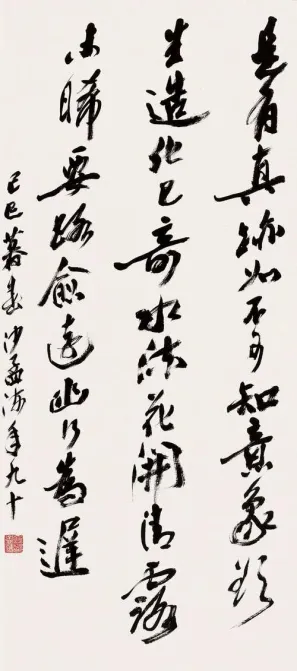 是有真迹如不可知意象欲
生造化已奇水流花开清露
未晞要路愈远幽行为迟
己巳暮春沙孟海年九十